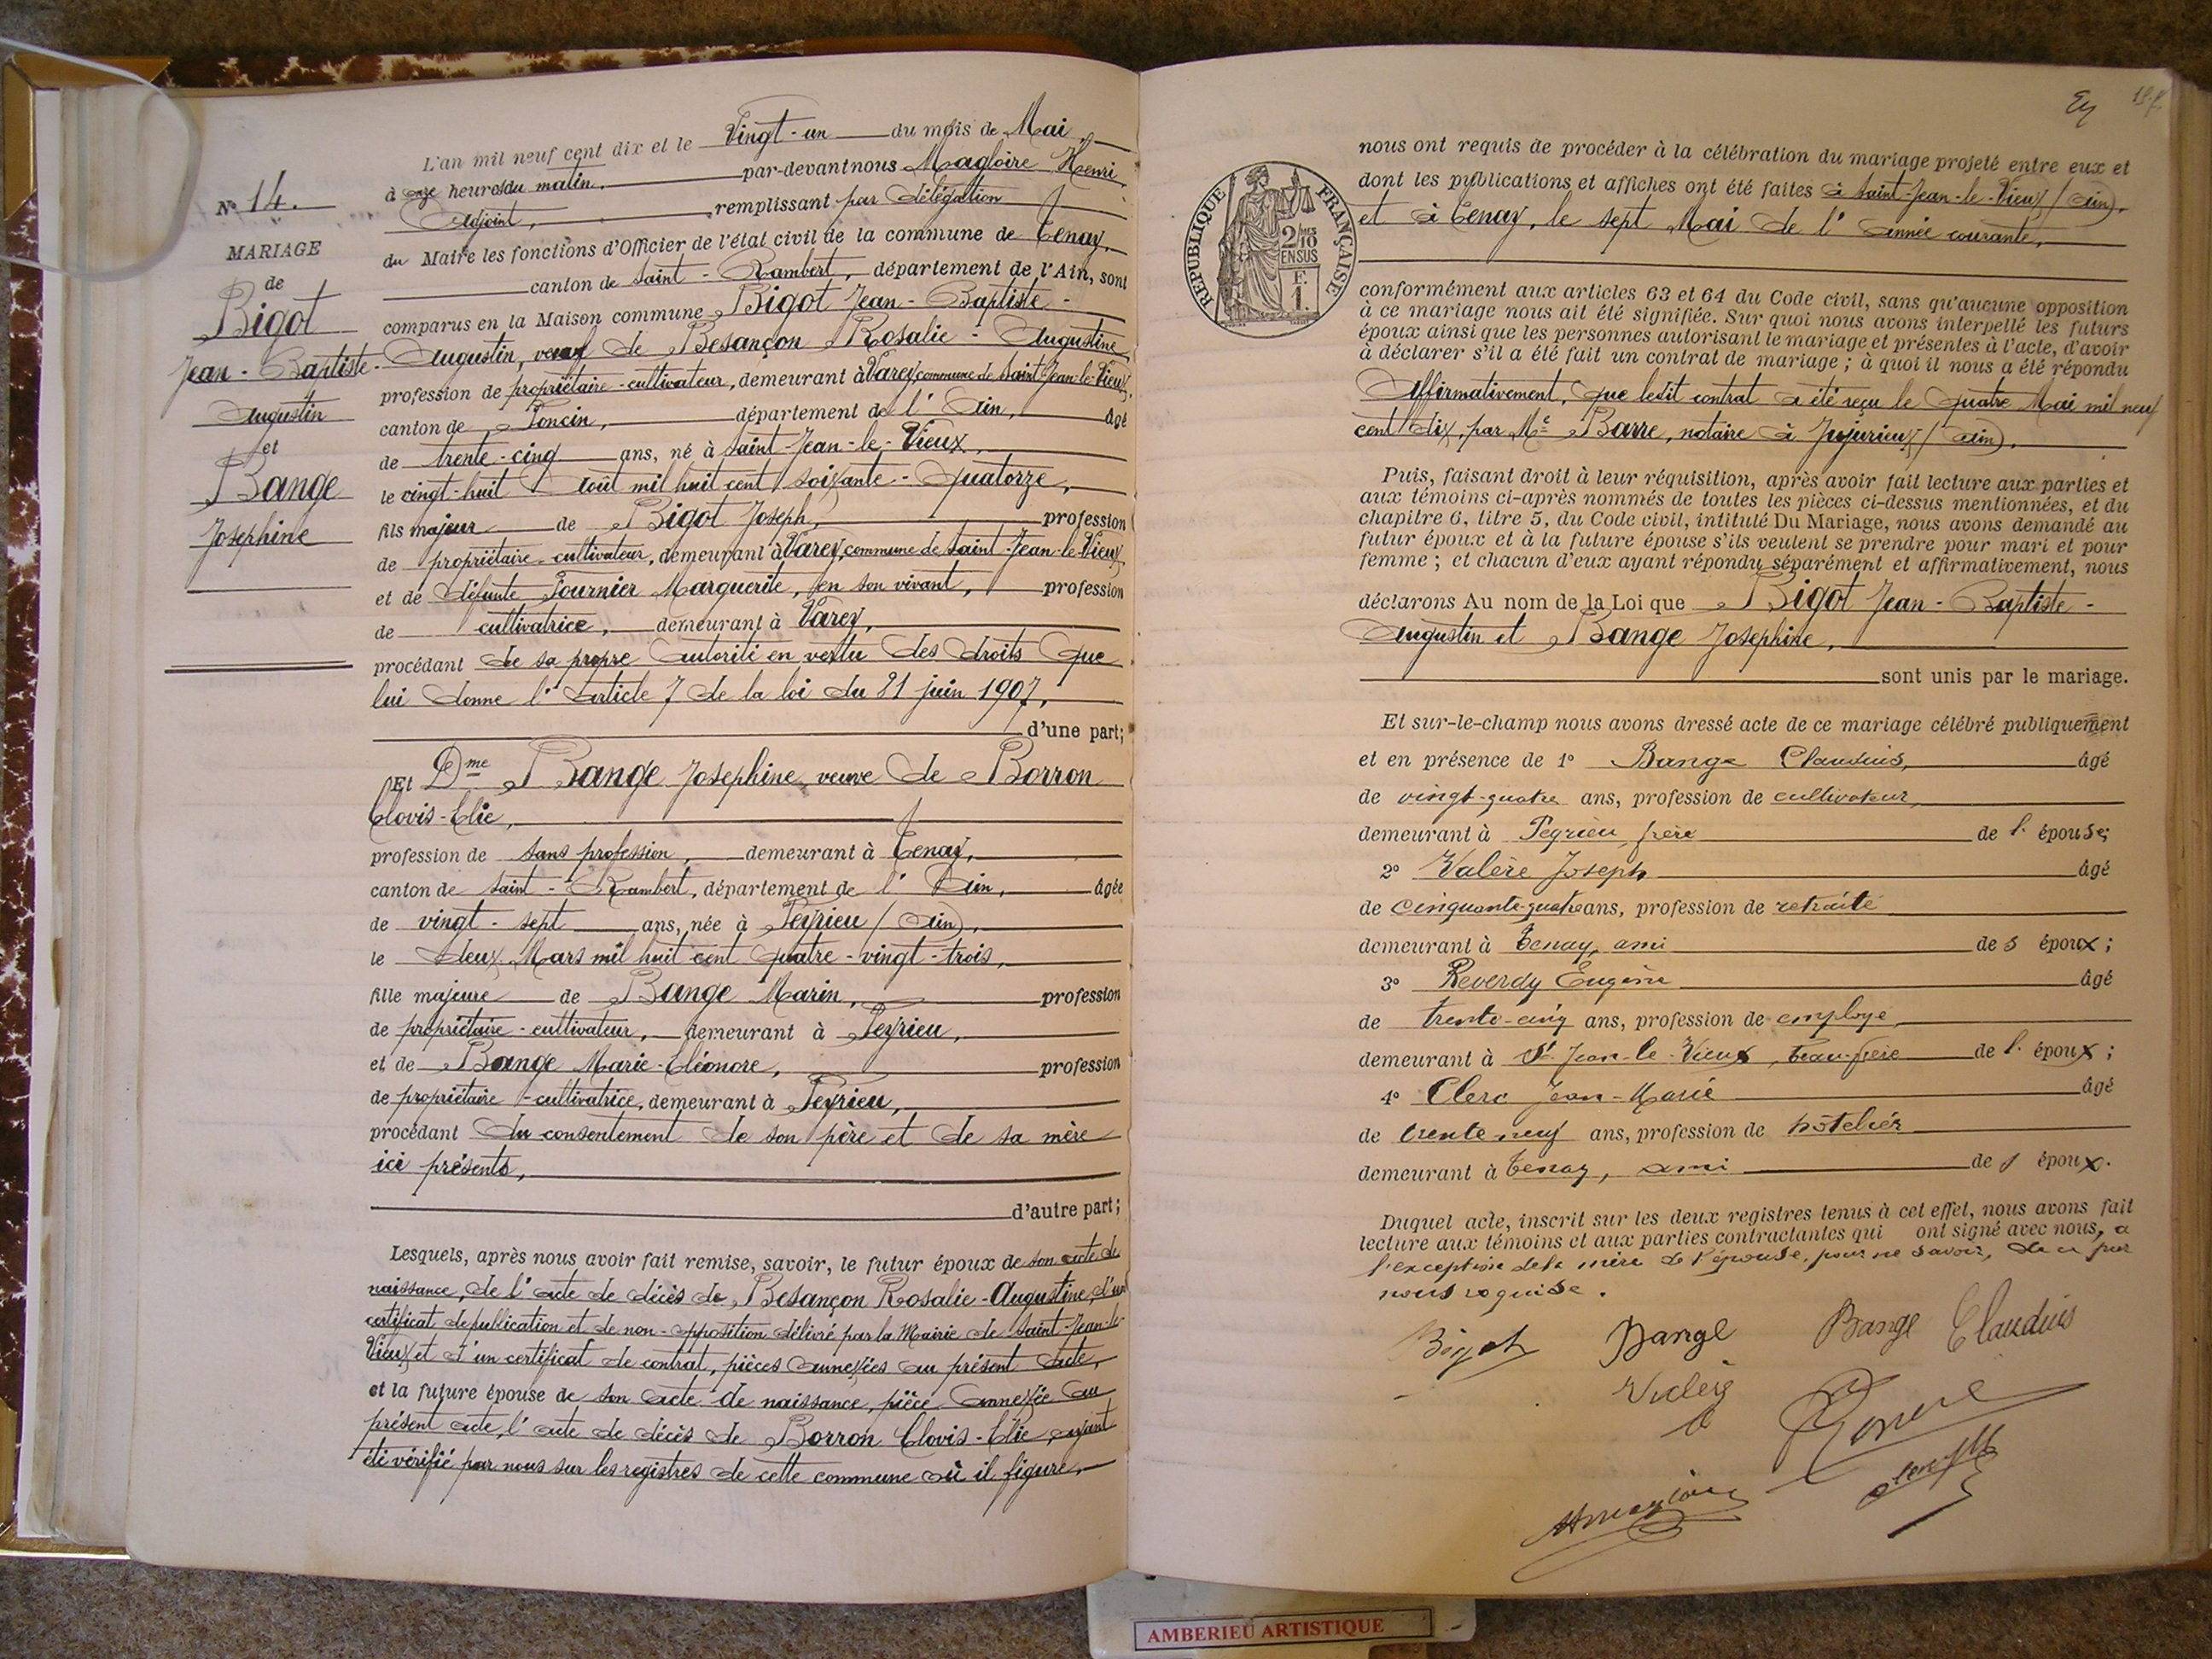 N° 14.
MARIAGE
de
Bigot
Jean-Baptiste-
Augustin
et
Bange
Josephine
L'an mil neuf cent dix et le Vingt-un du mois de Mai,
à onze heures du matin, par-devant nous Magloire Henri,
Adjoint, remplissant par délégation
du Maire les fonctions d'Officier de l'état civil de la commune de Tenay,
canton de Saint-Rambert, département de l'Ain, sont
comparus en la Maison commune Bigot Jean-Baptiste-
Augustin, veuf de Besançon Rosalie-Augustine
profession de propriétaire-cultivateur, demeurant à Varey, commune de Saint-Jean-le-Vieux,
canton de Poncin, département de l'Ain, âgé
de trente-cinq ans, né à Saint-Jean-le-Vieux,
le vingt-huit Août mil huit cent soixante-quatorze,
fils majeur de Bigot Joseph, profession
de propriétaire-cultivateur, demeurant à Varey, commune de Saint-Jean-le-Vieux,
et de défunte Fournier Marguerite, en son vivant, profession
de cultivatrice, demeurant à Varey,
procédant de sa propre autorité en vertu des droits que
lui donne l'article 7 de la loi du 21 juin 1907,
d'une part;
Et Dme Bange Josephine, veuve de Borron
Clovis-Elie,
profession de sans profession, demeurant à Tenay,
canton de Saint-Rambert, département de l'Ain, âgée
de vingt-sept ans, née à Peyrieu (Ain),
le deux Mars mil huit cent quatre-vingt-trois,
fille majeure de Bange Marin, profession
de propriétaire-cultivateur, demeurant à Peyrieu,
et de Bange Marie-Eléonore, profession
de propriétaire-cultivatrice, demeurant à Peyrieu,
procédant du consentement de son père et de sa mère
ici présents,
d'autre part;
Lesquels, après nous avoir fait remise, savoir, le futur époux de son acte de
naissance, de l'acte de décès de Besançon Rosalie-Augustine, d'un
certificat de publication et de non-opposition délivré par la Mairie de Saint-Jean-le-
Vieux et d'un certificat de contrat, pièces annexées au présent acte,
et la future épouse de son acte de naissance, pièce annexée au
présent acte, l'acte de décès de Borron Clovis-Elie, ayant
été vérifié par nous sur les registres de cette commune où il figure,
RÉPUBLIQUE FRANÇAISE
2/10
EN SUS
F.
1.
nous ont requis de procéder à la célébration du mariage projeté entre eux et
dont les publications et affiches ont été faites à Saint-Jean-le-Vieux (Ain),
et à Tenay, le sept Mai de l'année courante,
conformément aux articles 63 et 64 du Code civil, sans qu'aucune opposition
à ce mariage nous ait été signifiée. Sur quoi nous avons interpellé les futurs
époux ainsi que les personnes autorisant le mariage et présentes à l'acte, d'avoir
à déclarer s'il a été fait un contrat de mariage ; à quoi il nous a été répondu
Affirmativement, que ledit contrat a été reçu le quatre Mai mil neuf
cent dix, par Me Barre, notaire à Jujurieux (Ain),
Puis, faisant droit à leur réquisition, après avoir fait lecture aux parties et
aux témoins ci-après nommés de toutes les pièces ci-dessus mentionnées, et du
chapitre 6, titre 5, du Code civil, intitulé Du Mariage, nous avons demandé au
futur époux et à la future épouse s'ils veulent se prendre pour mari et pour
femme ; et chacun d'eux ayant répondu séparément et affirmativement, nous
déclarons Au nom de la Loi que Bigot Jean-Baptiste-
Augustin et Bange Josephine,
sont unis par le mariage.
Et sur-le-champ nous avons dressé acte de ce mariage célébré publiquement
et en présence de 1° Bange Claudius, âgé
de vingt-quatre ans, profession de cultivateur,
demeurant à Peyrieu, frère de l'épouse;
2° Valère Joseph âgé
de cinquante-quatre ans, profession de retraité
demeurant à Tenay, ami de s époux;
3° Reverdy Eugène âgé
de trente-cinq ans, profession de employé
demeurant à St Jean-le-Vieux, beau-frère de l'époux;
4° Clerc Jean-Marie âgé
de trente neuf ans, profession de hôtelier
demeurant à Tenay, ami de s époux.
Duquel acte, inscrit sur les deux registres tenus à cet effet, nous avons fait
lecture aux témoins et aux parties contractantes qui ont signé avec nous, a
l'exception de la mère de l'épouse, pour ne savoir, de ce par
nous requise.
Bigot Bange Bange Claudius
Valère
AMBERIEU ARTISTIQUE